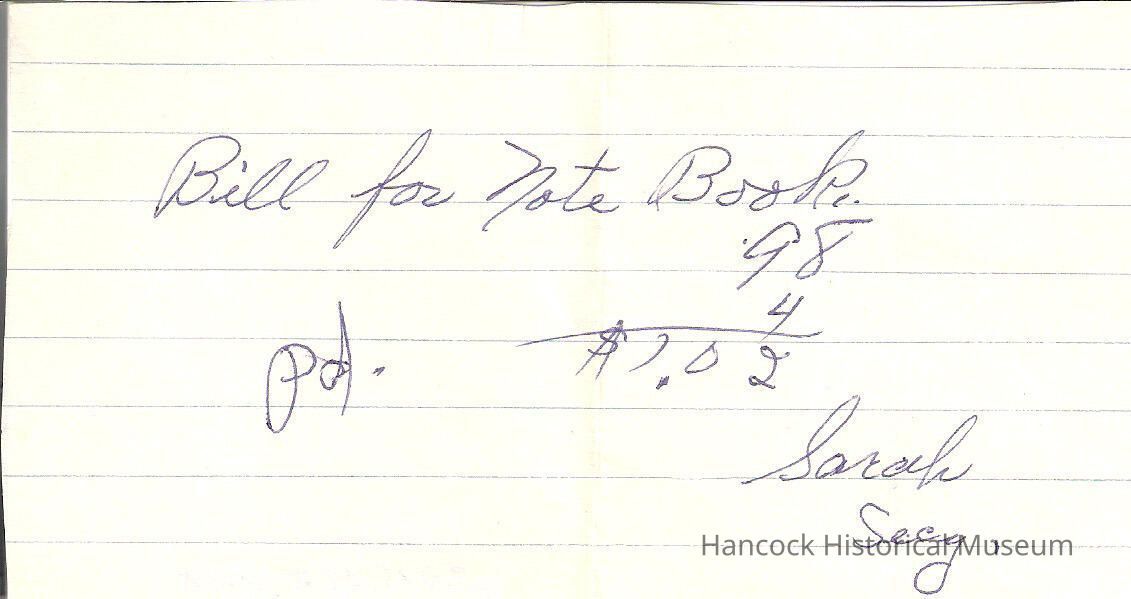 Bill for Note Book.
.98
4
pd. $1.02
Sarah
Secy.
Hancock Historical Museum